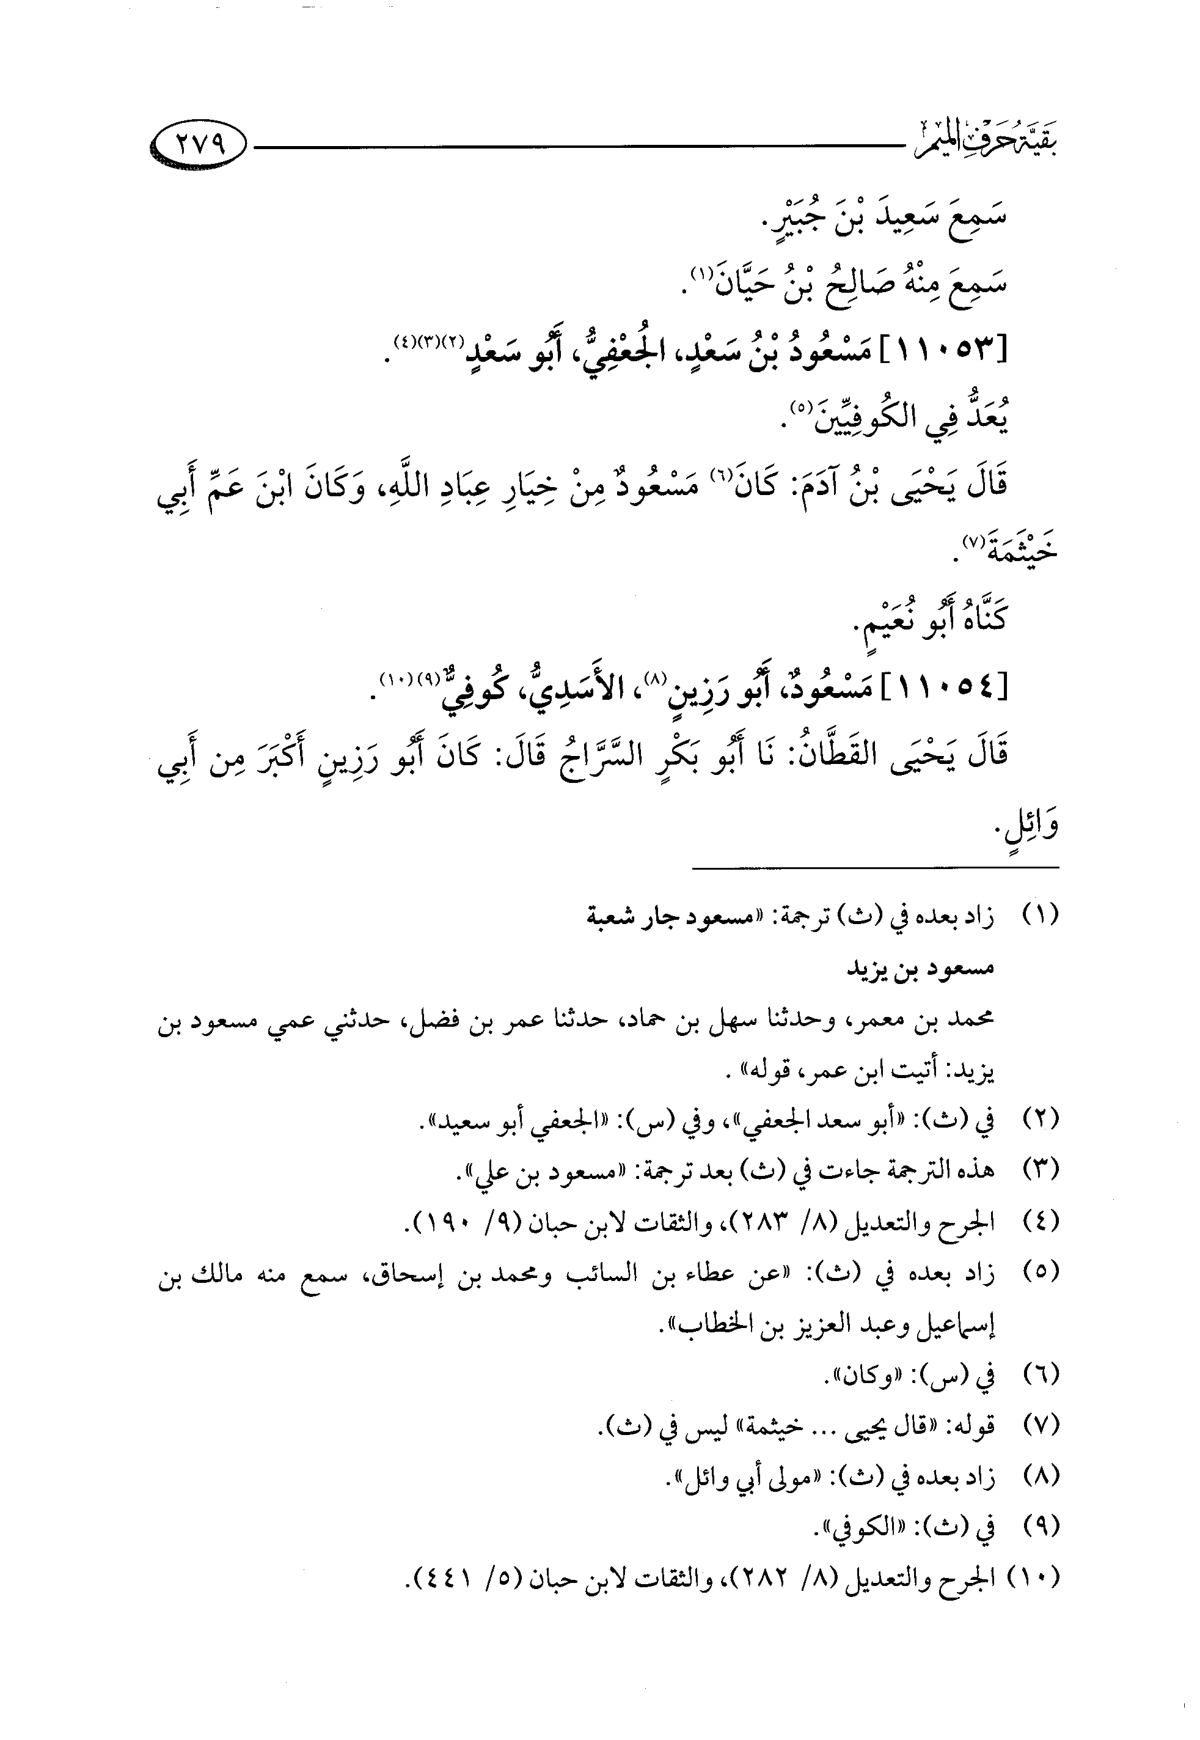 بَقِيَّةُ حَرْفِ المِيمِ
٢٧٩
سَمِعَ سَعِيدَ بْنَ جُبَيْرٍ.
سَمِعَ مِنْهُ صَالِحُ بْنُ حَيَّانَ(١).
[١١٠٥٣] مَسْعُودُ بْنُ سَعْدٍ، الجُعْفِيُّ، أَبُو سَعْدٍ(٢)(٣)(٤).
يُعَدُّ فِي الكُوفِيِّينَ(٥).
قَالَ يَحْيَى بْنُ آدَمَ: كَانَ(٦) مَسْعُودٌ مِنْ خِيَارِ عِبَادِ اللَّهِ، وَكَانَ ابْنَ عَمِّ أَبِي
خَيْثَمَةَ(٧).
كَنَّاهُ أَبُو نُعَيْمٍ.
[١١٠٥٤] مَسْعُودٌ، أَبُو رَزِينٍ(٨)، الأَسَدِيُّ، كُوفِيٌّ(٩)(١٠).
قَالَ يَحْيَى القَطَّانُ: نَا أَبُو بَكْرٍ السَّرَّاجُ قَالَ: كَانَ أَبُو رَزِينٍ أَكْبَرَ مِن أَبِي
وَائِلٍ.
(١) زاد بعده في (ث) ترجمة: «مسعود جار شعبة
مسعود بن يزيد
محمد بن معمر، وحدثنا سهل بن حماد، حدثنا عمر بن فضل، حدثني عمي مسعود بن
يزيد: أتيت ابن عمر، قوله» .
(٢) في (ث): «أبو سعد الجعفي»، وفي (س): «الجعفي أبو سعيد».
(٣) هذه الترجمة جاءت في (ث) بعد ترجمة: «مسعود بن علي».
(٤) الجرح والتعديل (٨/ ٢٨٣)، والثقات لابن حبان (٩/ ١٩٠).
(٥) زاد بعده في (ث): «عن عطاء بن السائب ومحمد بن إسحاق، سمع منه مالك بن
إسماعيل وعبد العزيز بن الخطاب».
(٦) في (س): «وكان».
(٧) قوله: «قال يحيى ... خيثمة» ليس في (ث).
(٨) زاد بعده في (ث): «مولى أبي وائل».
(٩) في (ث): «الكوفي».
(١٠) الجرح والتعديل (٨/ ٢٨٢)، والثقات لابن حبان (٥/ ٤٤١).